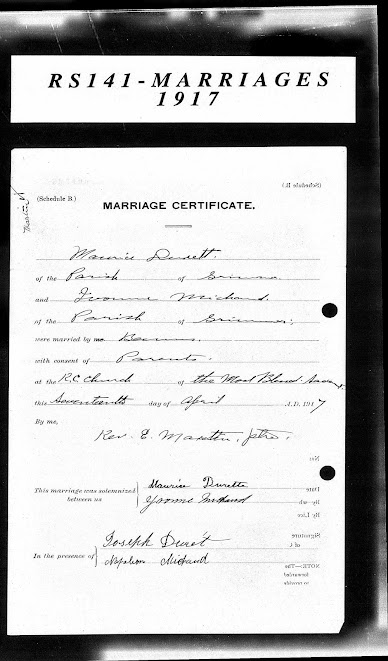 RS141-MARRIAGES
1917
(Schedule B.)
MARRIAGE CERTIFICATE.
Maurice Durett
of the Parish of
and Ivonne Michaud
of the Parish of
were married by
with consent of Parents.
at the R.C. Church of the Most Blessed
this Seventeenth day of April A.D. 1917
By me,
Rev. E.
This marriage was solemnized
between us
Maurice Durette
Yvonne Michaud
In the presence of
Joseph Duret
Napoleon Michaud